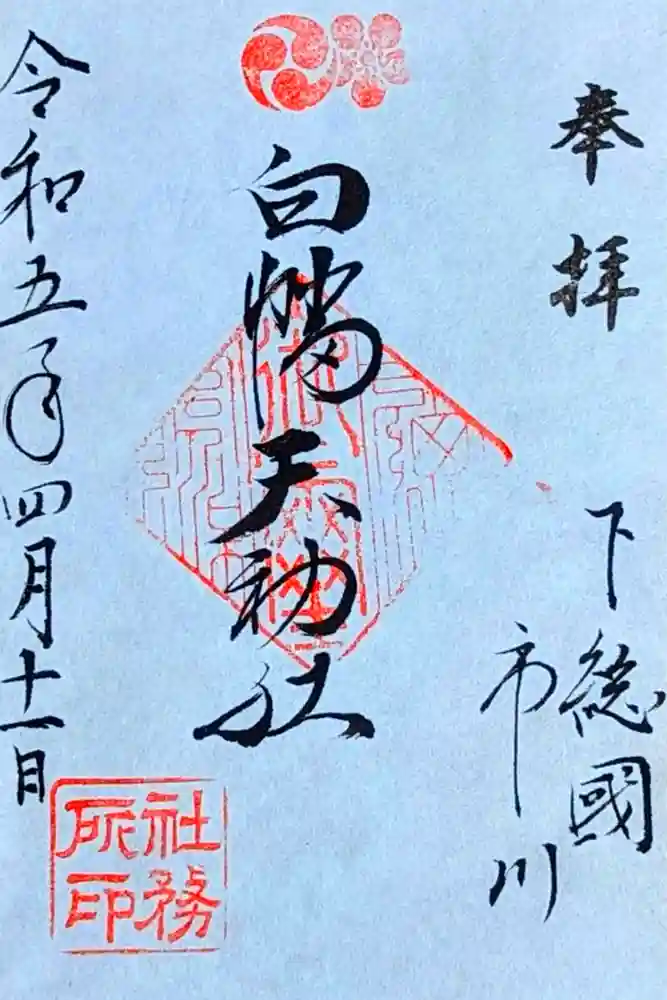 奉拝
下総國
市川
白幡天神社
令和五年四月十一日
社務
所印